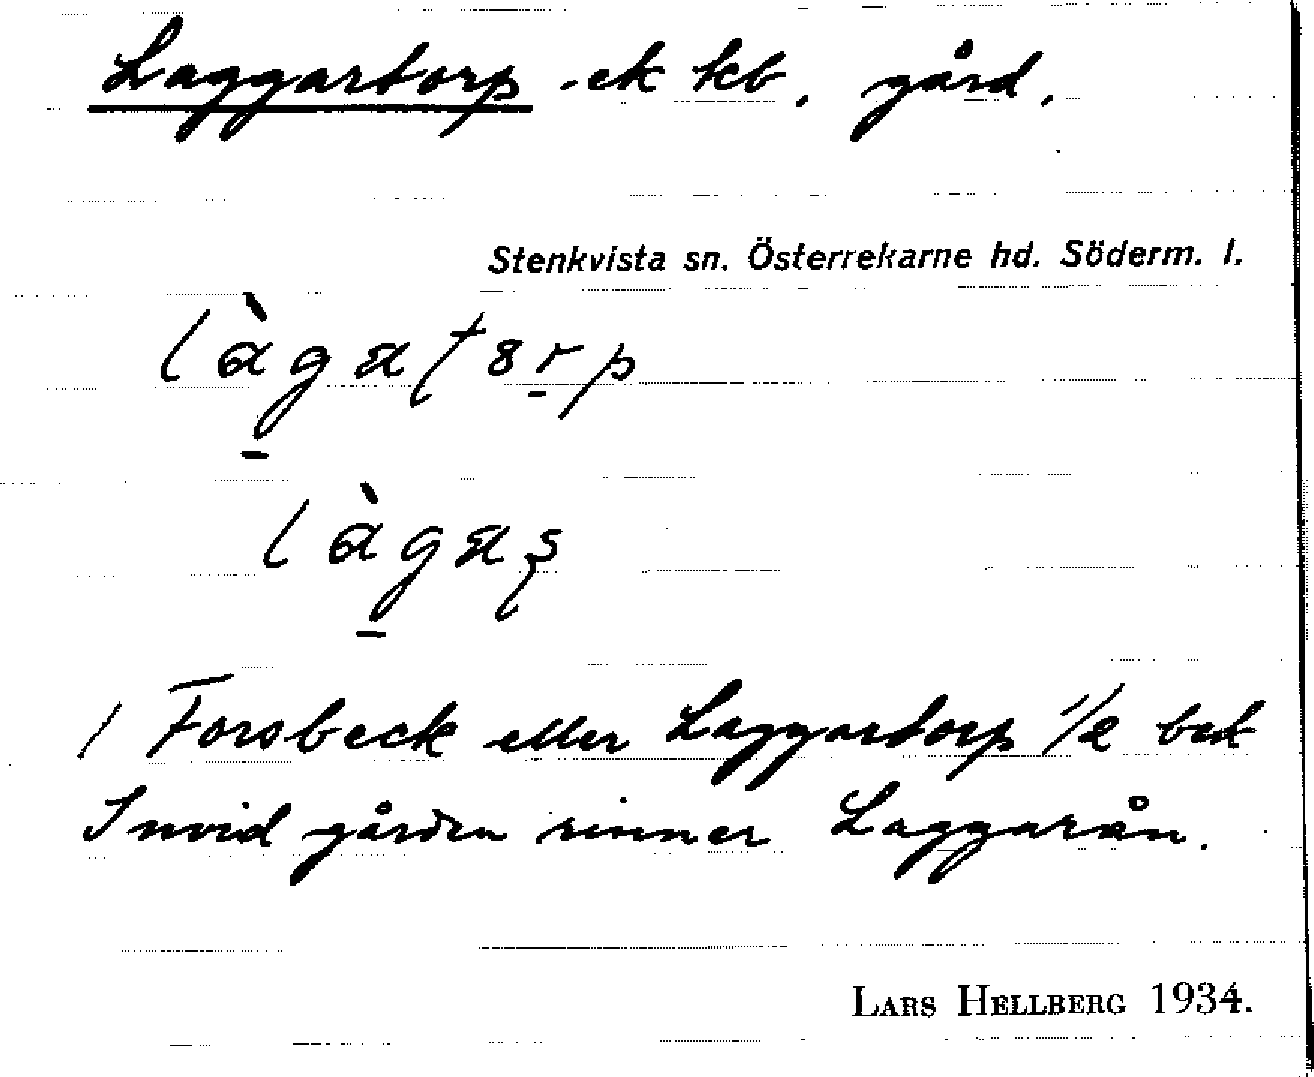 Laggartorp -ek kb, gård,
Stenkvista sn. Österrekarne hd. Söderm. l.
làgatorp
làgas
/ Forsbeck eller Laggartorp 1/2
Invid gården rinner Laggarån.
LARS HELLBERG 1934.